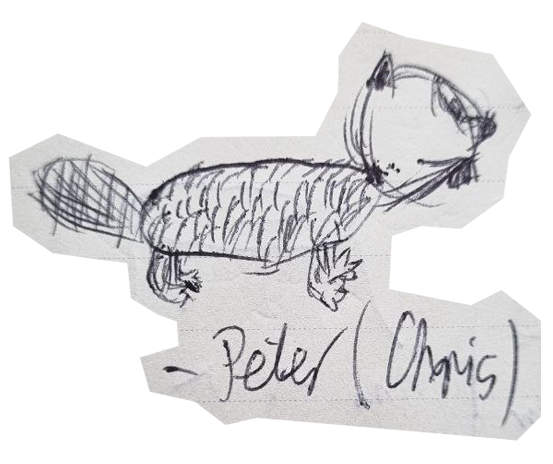 - Peter (Chris)